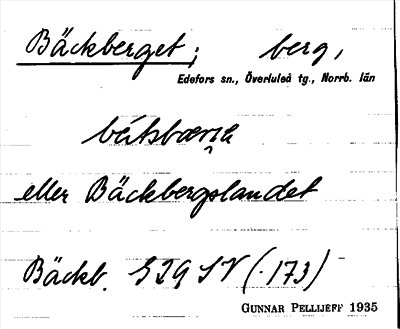 Bäckberget; berg,
Edefors sn., Överluleå tg., Norrb. län
eller Bäckbergslandet
Bäckb. S29SV (173)
GUNNAR PELLIJEFF 1935